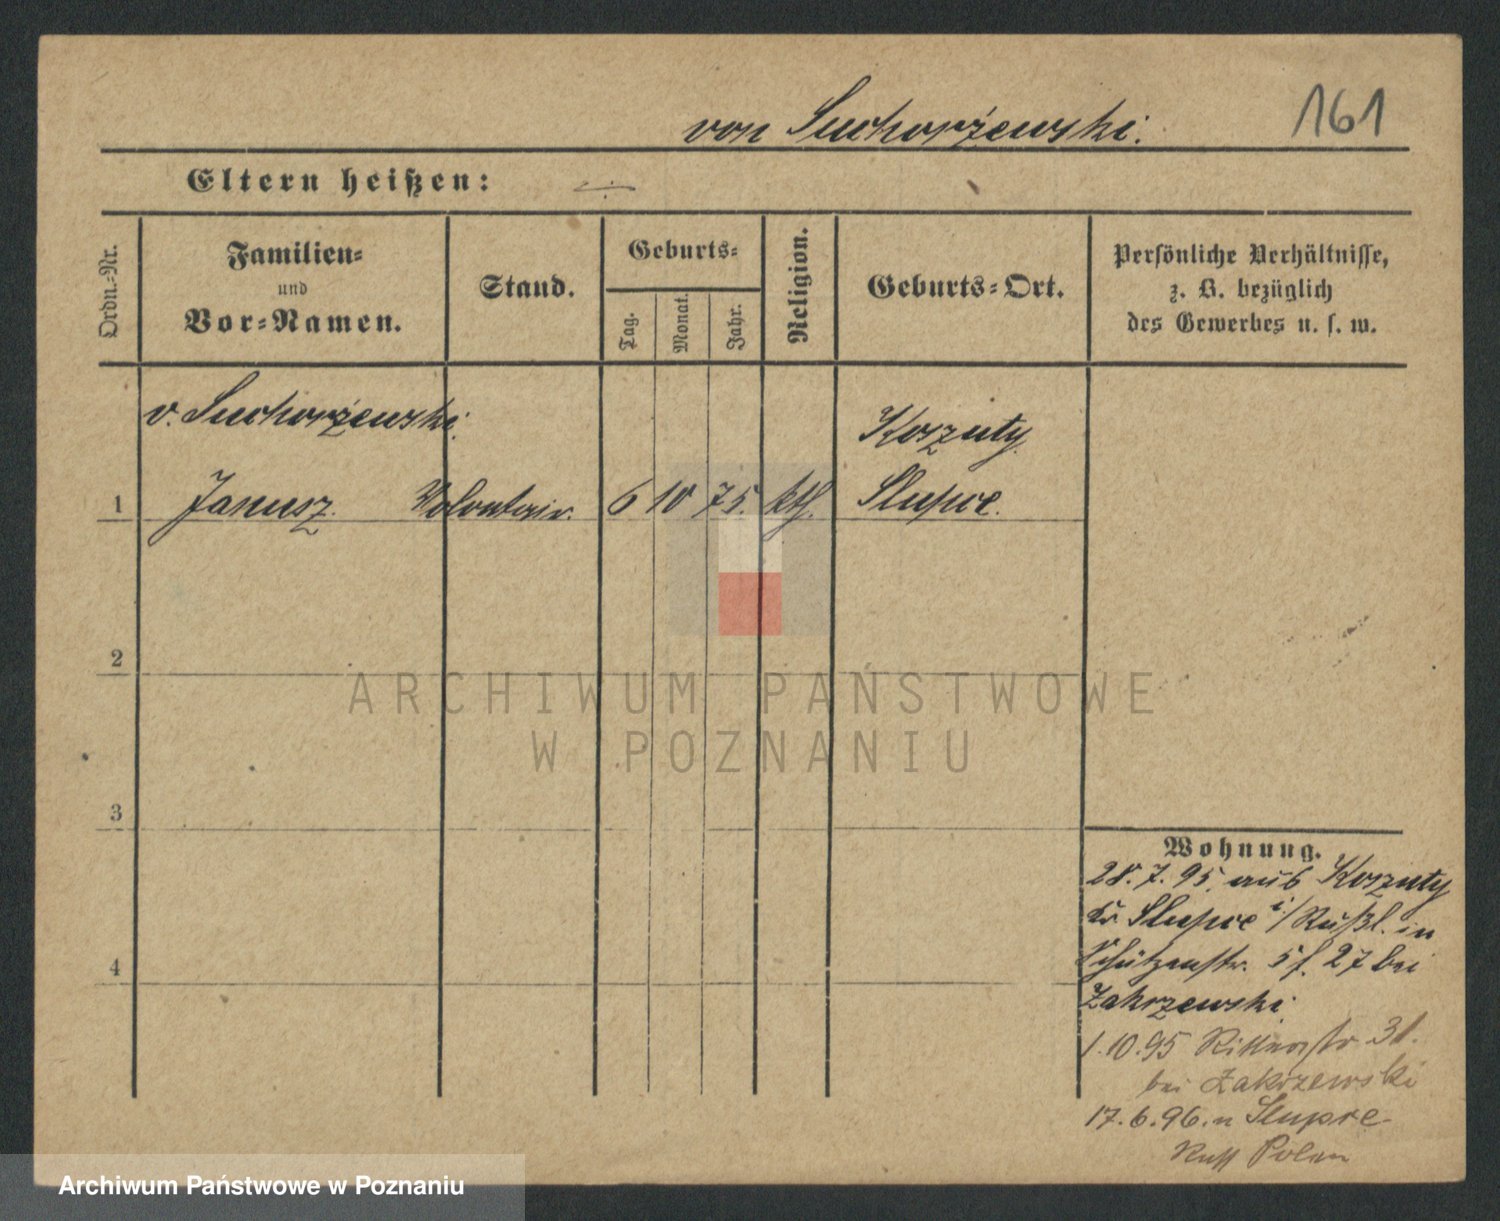 161
von Suchorżewski.
Eltern heißen:
Ordn.-Nr.
Familien-
und
Vor-Namen.
Stand.
Geburts-
Tag.
Monat.
Jahr.
Religion.
Geburts-Ort.
Persönliche Verhältnisse,
z. B. bezüglich
des Gewerbes u. s. w.
v. Suchorżewski.
Koszuty.
1 Janusz. Volontair. 6 10 75. kth. Slupce.
2
3
4
Wohnung.
28.7.95. aus Koszuty
Kr. Slupce i/Rußl. in
Schützenstr. 5 f. 27 bei
Zakrzewski.
1.10.95 Ritterstr 31.
bei Zakrzewski
17.6.96. n Slupce
Russ Polen
ARCHIWUM PAŃSTWOWE
W POZNANIU
Archiwum Państwowe w Poznaniu